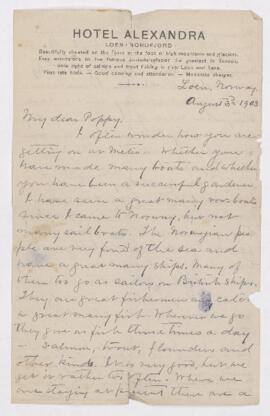 HOTEL ALEXANDRA
LOEN-NORDFJORD
Beautifully situated on the Fjord at the foot of high mountains and glaciers.
Easy excursions to the famous Jostedalsglacier the greatest in Europe.
Sole right of salmon and trout fishing in river Loen and Lake.
First rate beds. — Good cooking and attendance. — Moderate charges.
Loen, Norway.
August 3rd 1903
My dear Poppy.
I often wonder how you are
getting on at Metis. Whether you
have made many boats and whether
you have been a successful gardener.
I have seen a great many row boats
since I came to Norway, but not
many sail boats. The Norwegian peo-
ple are very fond of the sea and
have a great many ships. Many of
them too go as sailors on British ships.
They are great fishermen and catch
a great many fish. Wherever we go
they give us fish three times a day
— Salmon, trout, flounders and
other kinds. It is very good, but we
get it rather too often. Where we
are staying at present there are a